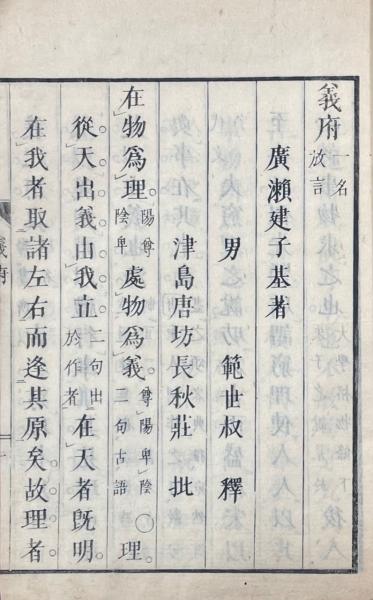 義府 一名放言
廣瀨建子基著
男 範世叔 釋
津島唐坊長秋莊 批
在物爲理。陽尊陰卑 處物爲義。尊陽卑陰二句古語 〇理。
從天出義由我立。二句出於作者 在天者旣明。
在我者取諸左右而逢其原矣。故理者
義府